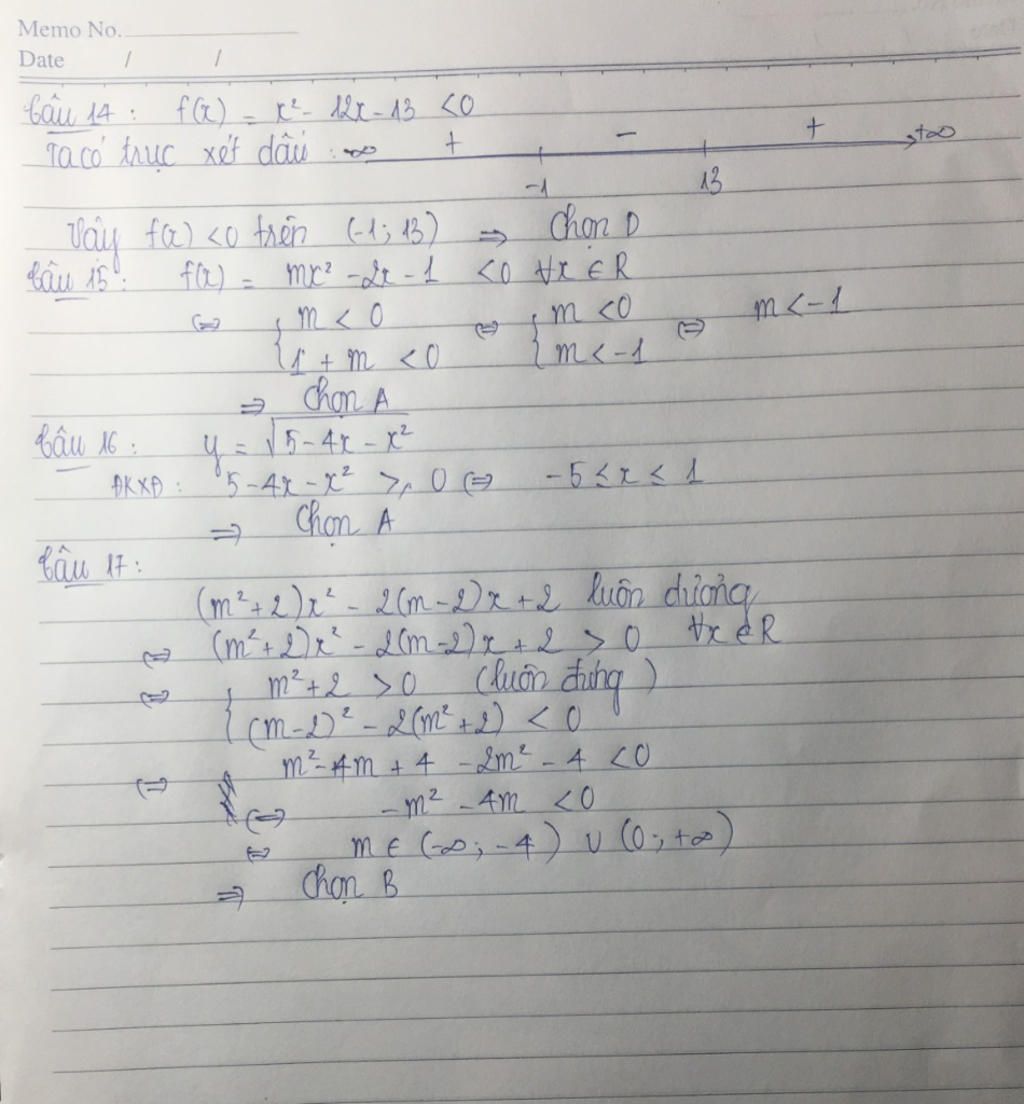 Memo No.
Date / /
Câu 14 : f(x) = x² - 12x - 13 < 0
Ta có trục xét dấu : -∞ + - + +∞
-1 13
Vậy f(x) < 0 trên (-1 ; 13) ⇒ Chọn D
Câu 15 : f(x) = mx² - 2x - 1 < 0 ∀x ∈ R
⇔ { m < 0 ⇔ { m < 0 ⇔ m < -1
1 + m < 0 m < -1
⇒ Chọn A
Câu 16 : y = √(5 - 4x - x²)
ĐKXĐ : 5 - 4x - x² ⩾ 0 ⇔ -5 ≤ x ≤ 1
⇒ Chọn A
Câu 17 :
(m² + 2)x² - 2(m - 2)x + 2 luôn dương
⇔ (m² + 2)x² - 2(m - 2)x + 2 > 0 ∀x ∈ R
⇔ { m² + 2 > 0 (luôn đúng)
(m - 2)² - 2(m² + 2) < 0
⇔ m² - 4m + 4 - 2m² - 4 < 0
⇔ -m² - 4m < 0
⇔ m ∈ (-∞ ; -4) ∪ (0 ; +∞)
⇒ Chọn B